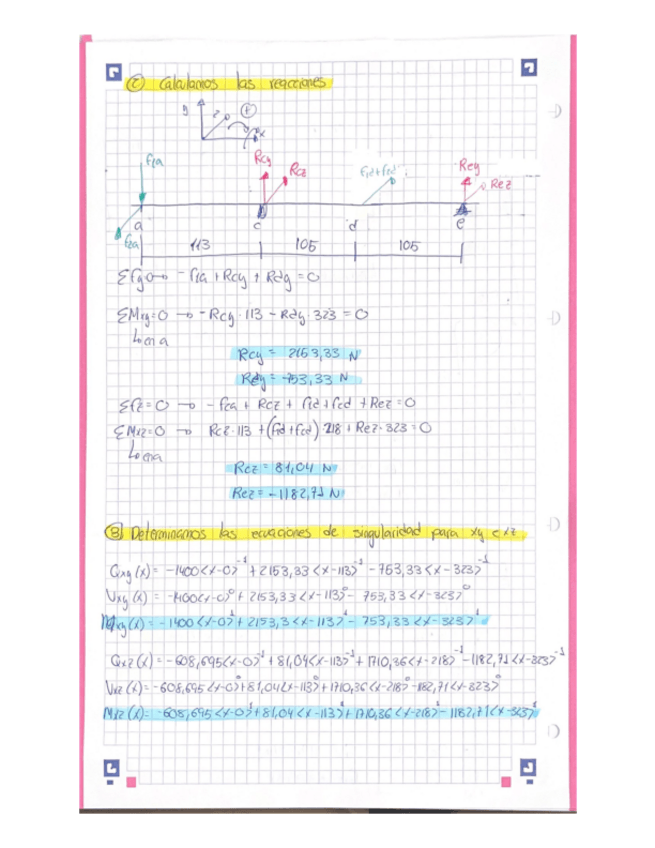 ② Calculamos las reacciones
y z + x
Fza
Rcy Rcz Ftd+Fcd Rey Rez
Fza
a c d e
113 105 105
ΣFy=0 → -Fza + Rcy + Rdy = 0
ΣMxy=0 → -Rcy·113 - Rdy·323 = 0
Lo en a
Rcy = 2153,33 N
Rdy = -753,33 N
ΣFz=0 → -Fza + Rcz + Ftd+Fcd + Rez = 0
ΣMxz=0 → Rcz·113 + (Ftd+Fcd)·218 + Rez·323 = 0
Lo en a
Rcz = 81,04 N
Rez = -1182,71 N
③ Determinamos las ecuaciones de singularidad para xy e xz.
Qxy(x) = -1400<x-0>⁻¹ + 2153,33<x-113>⁻¹ - 753,33<x-323>⁻¹
Vxy(x) = -1400<x-0>⁰ + 2153,33<x-113>⁰ - 753,33<x-323>⁰
Mxy(x) = -1400<x-0>¹ + 2153,3<x-113>¹ - 753,33<x-323>¹
Qxz(x) = -608,695<x-0>⁻¹ + 81,04<x-113>⁻¹ + 1710,36<x-218>⁻¹ - 1182,71<x-323>⁻¹
Vxz(x) = -608,695<x-0>⁰ + 81,04<x-113>⁰ + 1710,36<x-218>⁰ - 1182,71<x-323>⁰
Mxz(x) = -608,695<x-0>¹ + 81,04<x-113>¹ + 1710,36<x-218>¹ - 1182,71<x-323>¹